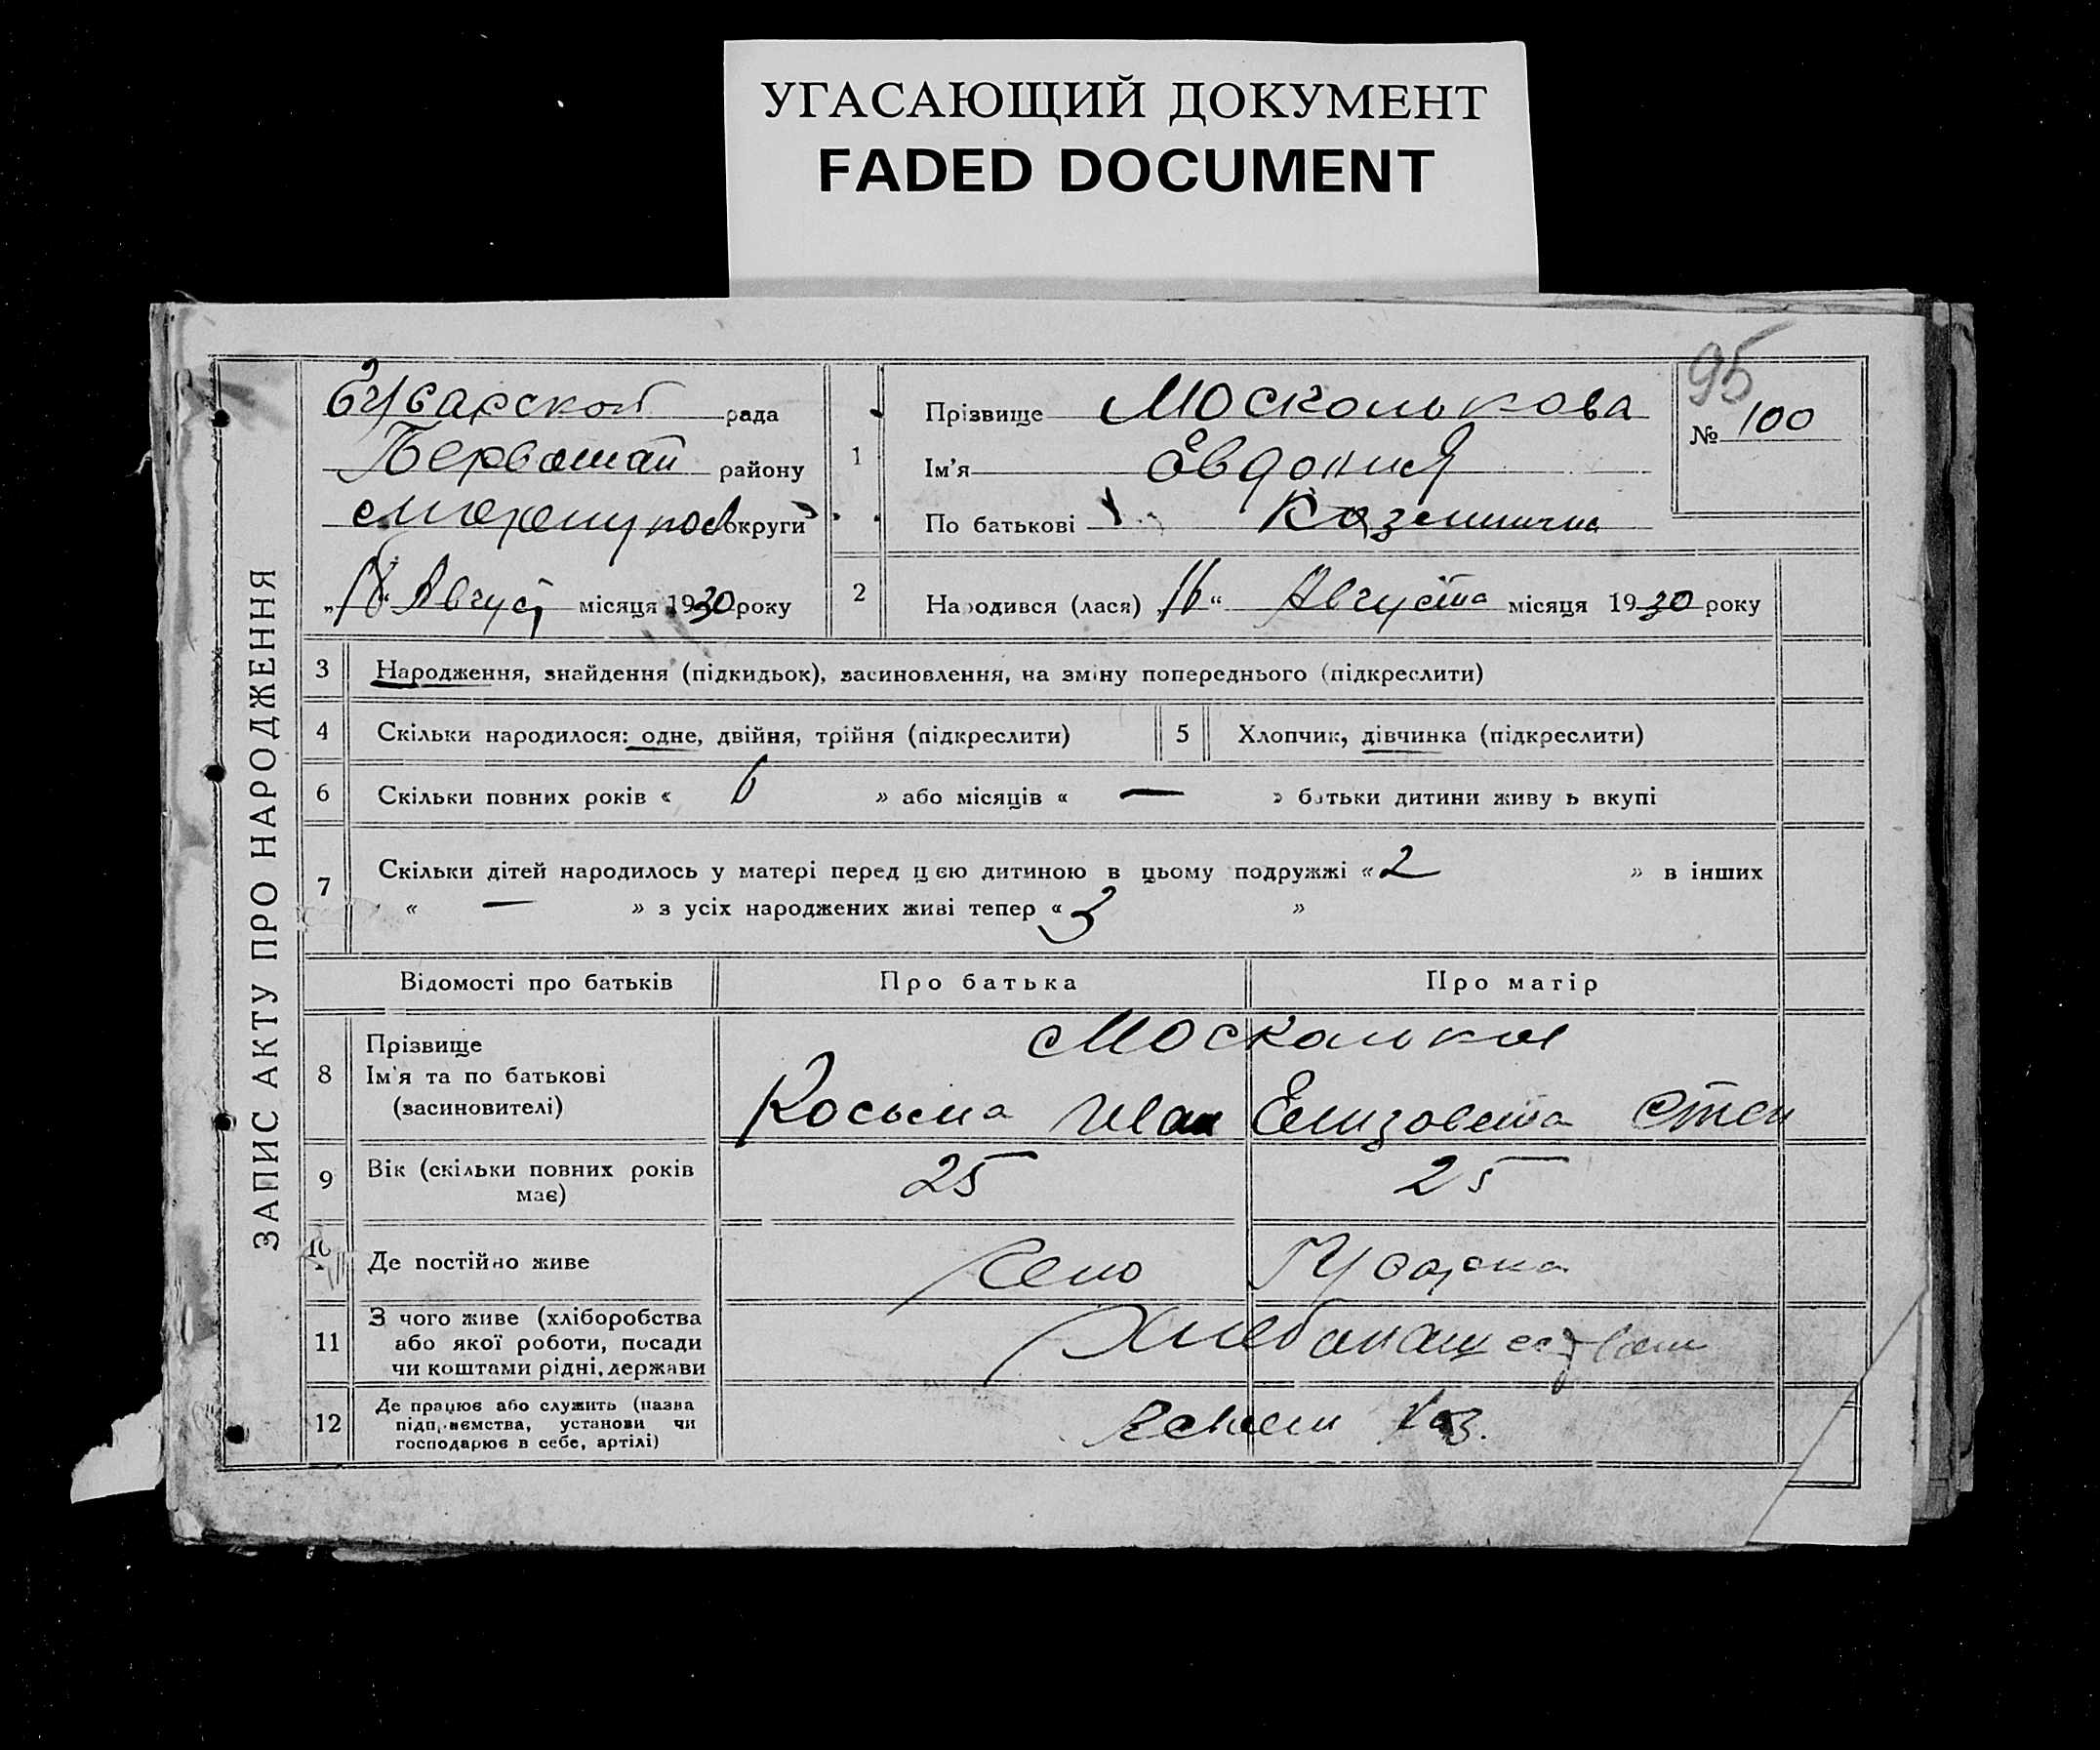 УГАСАЮЩИЙ ДОКУМЕНТ
FADED DOCUMENT
95
ЗАПИС АКТУ ПРО НАРОДЖЕННЯ
Гусарской рада
Первомай району
округи
„18“ Август місяця 1930 року
1
Прізвище Москалькова
Ім'я Евдокия
По батькові Козминична
№ 100
2
Народився (лася) „16“ Августа місяця 1930 року
3 Народження, знайдення (підкидьок), засиновлення, на зміну попереднього (підкреслити)
4 Скільки народилося: одне, двійня, трійня (підкреслити)
5 Хлопчик, дівчинка (підкреслити)
6 Скільки повних років « 6 » або місяців « — » батьки дитини живуть вкупі
7 Скільки дітей народилось у матері перед цею дитиною в цьому подружжі « 2 » в інших
« — » з усіх народжених живі тепер « 3 »
Відомості про батьків
Про батька
Про матір
8 Прізвище
Ім'я та по батькові
(засиновителі)
Косьма Иван
Елизовета Степ
9 Вік (скільки повних років
має)
25
25
10 Де постійно живе
Село Гусарка
11 З чого живе (хліборобства
або якої роботи, посади
чи коштами рідні, держави
12 Де працює або служить (назва
підприємства, установи чи
господарює в себе, артілі)